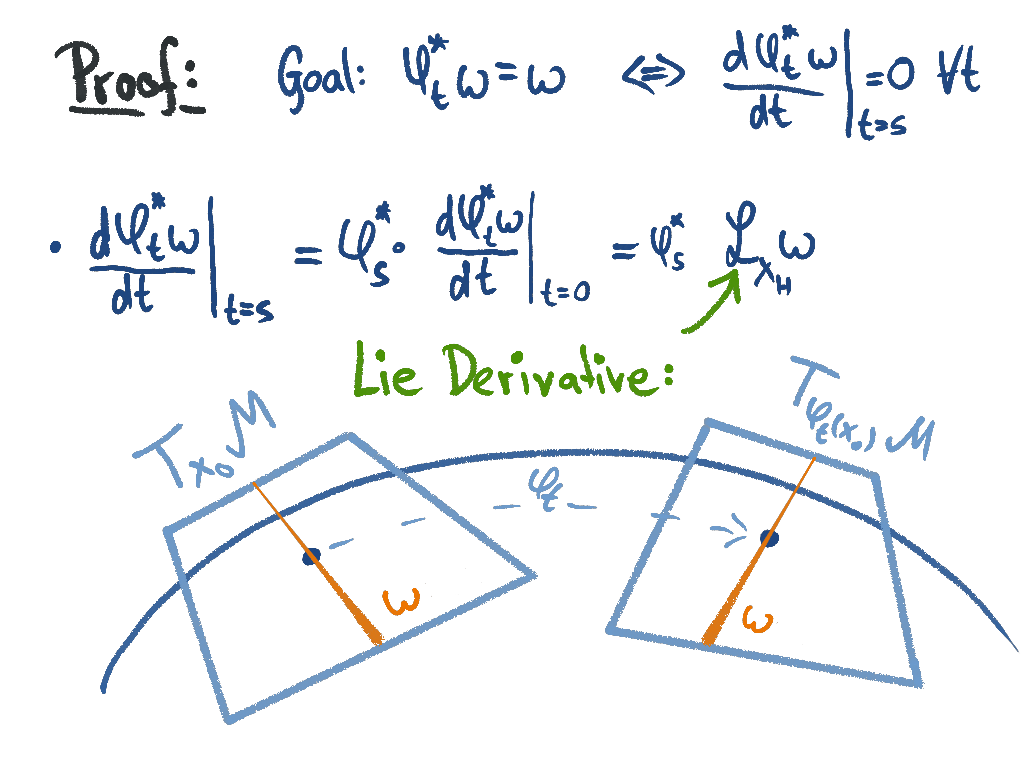 Proof: Goal: φ_t^* ω = ω ⇔ dφ_t^* ω/dt |_{t=s} = 0 ∀t
• dφ_t^* ω/dt |_{t=s} = φ_s^* · dφ_t^* ω/dt |_{t=0} = φ_s^* ℒ_{X_H} ω
Lie Derivative:
T_{x_0} M
T_{φ_t(x_0)} M
φ_t
ω
ω